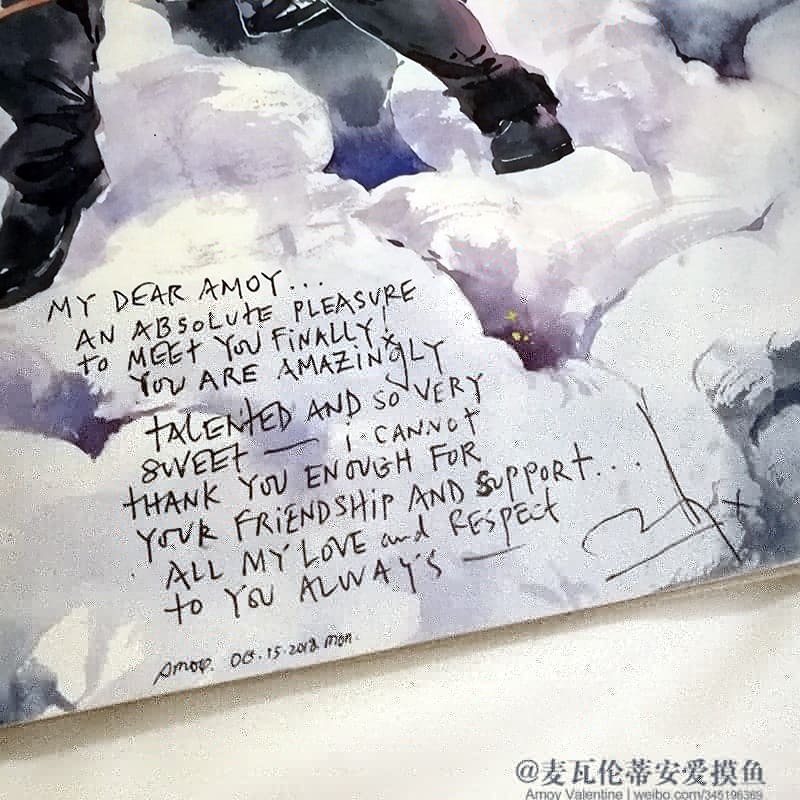 MY DEAR AMOY...
AN ABSOLUTE PLEASURE
to MEET YOU FINALLY!
YOU ARE AMAZINGLY
TALENTED AND SO VERY
SWEET — i CANNOT
THANK YOU ENOUGH FOR
YOUR FRIENDSHIP AND SUPPORT...
ALL MY LOVE and RESPECT
to YOU ALWAYS —
Amoy. Oct. 15. 2018 Mon.
@麦瓦伦蒂安爱摸鱼
Amoy Valentine | weibo.com/345196369